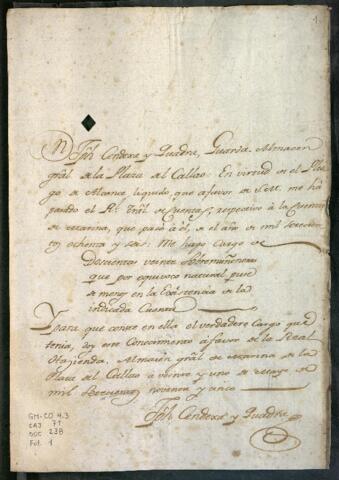 1
Dn Jph Cendexa y Quadra, Guarda Almacen
gral de la Plaza del Callao: En virtud de el Plie
go de Alcance liquido, que a favor de S. M. me ha
pasado el Rl. Trāl de Cuentas, respectivo à la Cuenta
de Marina, que pasé à el, de el año de mil setecien
tos ochenta y seis: Me hago Cargo de
Doscientas veinte Sobremuñoneras
que por equivoco natural puse
de menos en la Existencia de la
indicada Cuenta
Y para que conste en ella el verdadero Cargo que
tenia, doy este Conocimiento à favor de la Real
Hazienda. Almazen gral de Marina de la
Plaza del Callao à veinte y uno de Mayo de
mil Setecientos noventa y uno
Jph Cendexa y Quadra
GM-CO 4.3
CAJ 71
DOC 238
Fol. 1